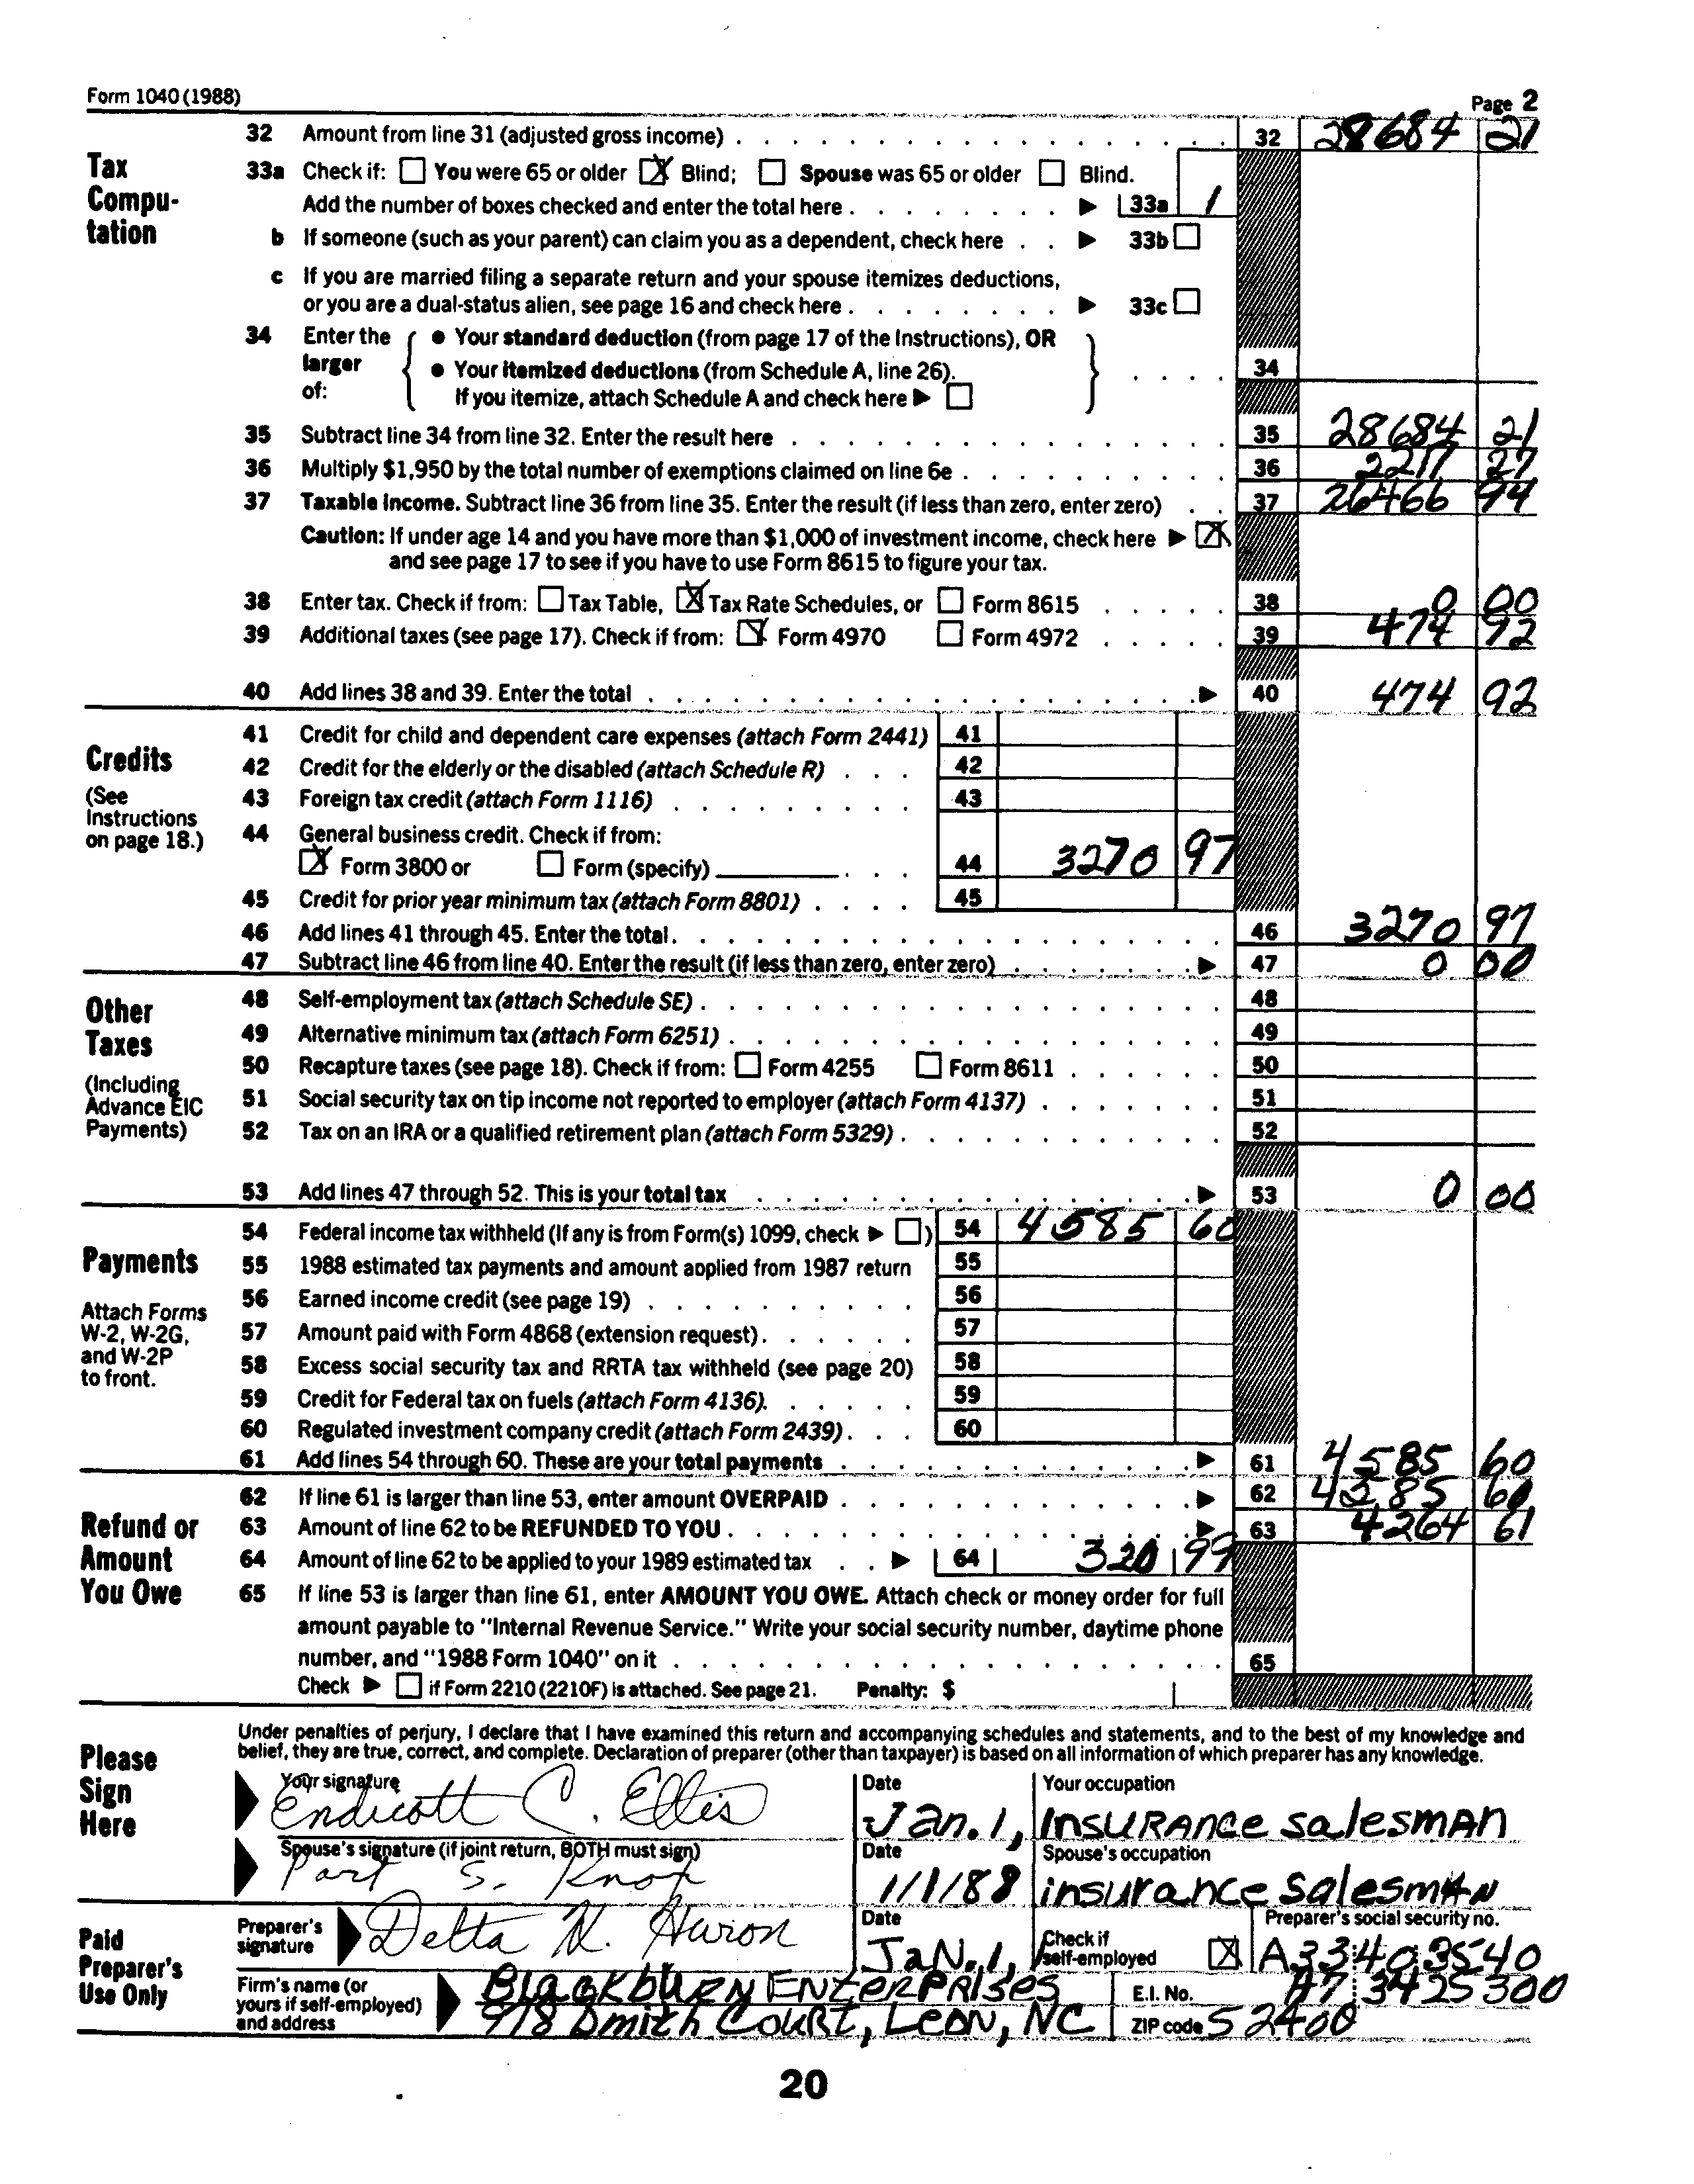 Form 1040 (1988) Page 2
32 Amount from line 31 (adjusted gross income) 32 28684 21
Tax Compu- tation
33a Check if: You were 65 or older X Blind; Spouse was 65 or older Blind.
Add the number of boxes checked and enter the total here 33a 1
b If someone (such as your parent) can claim you as a dependent, check here 33b
c If you are married filing a separate return and your spouse itemizes deductions,
or you are a dual-status alien, see page 16 and check here 33c
34 Enter the larger of:
• Your standard deduction (from page 17 of the Instructions), OR
• Your itemized deductions (from Schedule A, line 26).
If you itemize, attach Schedule A and check here 34
35 Subtract line 34 from line 32. Enter the result here 35 28684 21
36 Multiply $1,950 by the total number of exemptions claimed on line 6e 36 2217 27
37 Taxable income. Subtract line 36 from line 35. Enter the result (if less than zero, enter zero) 37 26466 94
Caution: If under age 14 and you have more than $1,000 of investment income, check here X
and see page 17 to see if you have to use Form 8615 to figure your tax.
38 Enter tax. Check if from: Tax Table, X Tax Rate Schedules, or Form 8615 38 0 00
39 Additional taxes (see page 17). Check if from: X Form 4970 Form 4972 39 474 92
40 Add lines 38 and 39. Enter the total 40 474 92
Credits
(See Instructions on page 18.)
41 Credit for child and dependent care expenses (attach Form 2441) 41
42 Credit for the elderly or the disabled (attach Schedule R) 42
43 Foreign tax credit (attach Form 1116) 43
44 General business credit. Check if from:
X Form 3800 or Form (specify) 44 3270 97
45 Credit for prior year minimum tax (attach Form 8801) 45
46 Add lines 41 through 45. Enter the total. 46 3270 97
47 Subtract line 46 from line 40. Enter the result (if less than zero, enter zero) 47 0 00
Other Taxes
(Including Advance EIC Payments)
48 Self-employment tax (attach Schedule SE) 48
49 Alternative minimum tax (attach Form 6251) 49
50 Recapture taxes (see page 18). Check if from: Form 4255 Form 8611 50
51 Social security tax on tip income not reported to employer (attach Form 4137) 51
52 Tax on an IRA or a qualified retirement plan (attach Form 5329) 52
53 Add lines 47 through 52. This is your total tax 53 0 00
Payments
Attach Forms W-2, W-2G, and W-2P to front.
54 Federal income tax withheld (If any is from Form(s) 1099, check ) 54 4585 60
55 1988 estimated tax payments and amount applied from 1987 return 55
56 Earned income credit (see page 19) 56
57 Amount paid with Form 4868 (extension request) 57
58 Excess social security tax and RRTA tax withheld (see page 20) 58
59 Credit for Federal tax on fuels (attach Form 4136). 59
60 Regulated investment company credit (attach Form 2439) 60
61 Add lines 54 through 60. These are your total payments 61 4585 60
Refund or Amount You Owe
62 If line 61 is larger than line 53, enter amount OVERPAID 62 4585 60
63 Amount of line 62 to be REFUNDED TO YOU 63 4264 61
64 Amount of line 62 to be applied to your 1989 estimated tax 64 320 99
65 If line 53 is larger than line 61, enter AMOUNT YOU OWE. Attach check or money order for full
amount payable to "Internal Revenue Service." Write your social security number, daytime phone
number, and "1988 Form 1040" on it 65
Check if Form 2210 (2210F) is attached. See page 21. Penalty: $
Please Sign Here
Under penalties of perjury, I declare that I have examined this return and accompanying schedules and statements, and to the best of my knowledge and
belief, they are true, correct, and complete. Declaration of preparer (other than taxpayer) is based on all information of which preparer has any knowledge.
Your signature Date Your occupation
Endicott C. Ellis Jan. 1, INSURANCE SALESMAN
Spouse's signature (if joint return, BOTH must sign) Date Spouse's occupation
Part S. Knox 1/1/88 insurance salesman
Paid Preparer's Use Only
Preparer's signature Delta N. Huron Date JaN. 1, Check if self-employed X Preparer's social security no. A33403540
Firm's name (or yours if self-employed) and address
Blackburn Enterprises E.I. No. A73425300
918 Dmith Court, Leon, NC ZIP code 52400
20